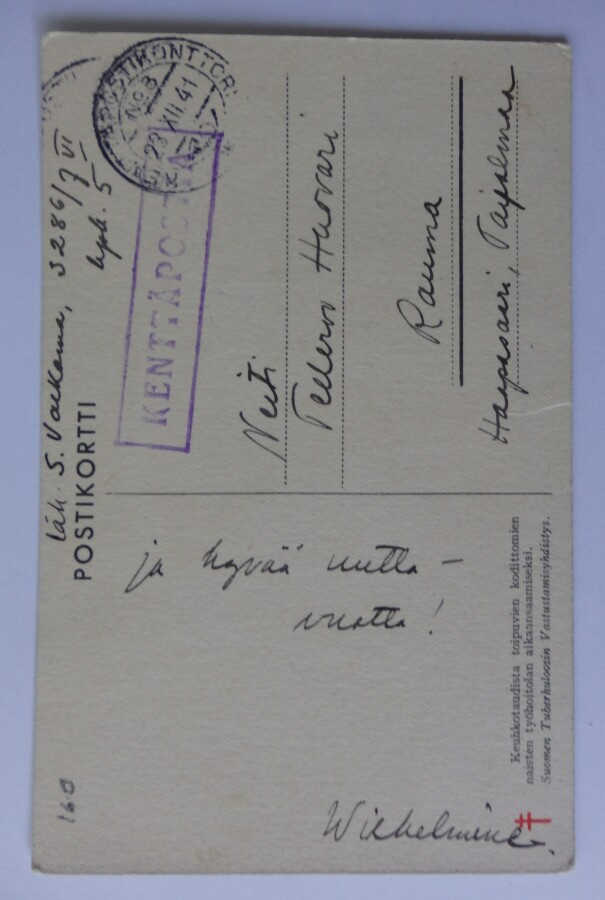 Läh. S. Vaekama, 3286/7 VI
kpk. 5
POSTIKORTTI
KENTTÄPOSTIKONTTORI
No 3
23 XII 41
KENTTÄPOSTIA
Neiti
Huovari
Rauma
Haapasaari,
ja hyvää uutta-
vuotta!
Keuhkotaudista toipuvien kodittomien
naisten työhoitolan aikaansaamiseksi.
Suomen Tuberkuloosin Vastustamisyhdistys.
160